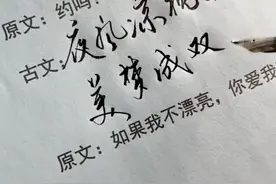 原文：约吗
古文：夜风凉
美梦成双
原文：如果我不漂亮，你爱我